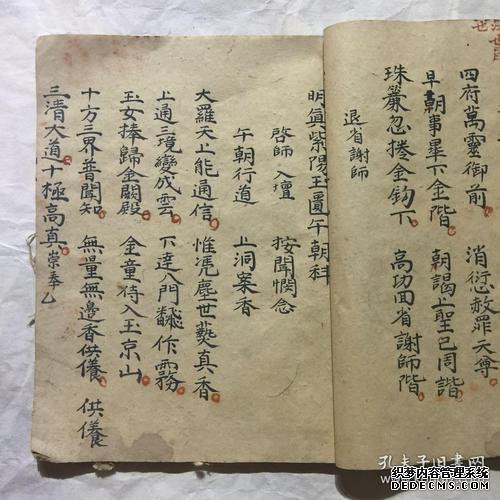 四府萬靈御前 消愆赦罪天尊
早朝事畢下金階 朝謁上聖已周諧
珠簾忽捲金鈎下 高功面省謝師階
退省謝師
明真紫陽玉匱午朝科
啓師入壇 按聞憫念
午朝行道 上洞案香
大羅天上能通信 惟凴塵世爇真香
上通三境變成雲 下達八門飜作霧
玉女捧歸金闕殿 金童侍入玉京山
十方三界普聞知 無量無邊香供養 供養
三清大道十極高真 崇奉
孔夫子旧書网